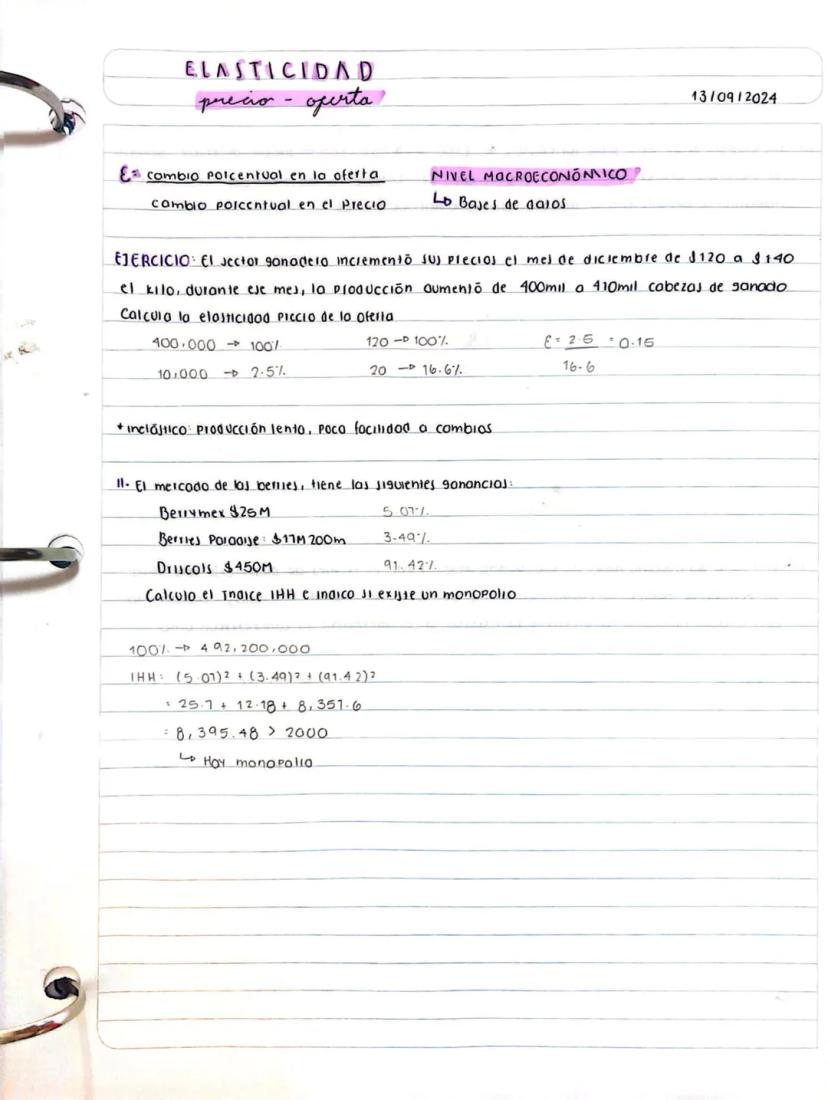 ELASTICIDAD
precio - oferta
13/09/2024
ε= cambio porcentual en la oferta
cambio porcentual en el precio
NIVEL MACROECONÓMICO
↳ Bases de datos
EJERCICIO: El sector ganadero incrementó sus precios el mes de diciembre de $120 a $140
el kilo, durante ese mes, la producción aumentó de 400mil a 410mil cabezas de ganado
Calcula la elasticidad precio de la oferta
400,000 → 100%
120 → 100%
ε = 2.5 = 0.15
10,000 → 2.5%
20 → 16.6%
16.6
* inelástico: producción lenta, poca facilidad a cambios
11. El mercado de las berries, tiene las siguientes ganancias:
Berrymex $25M 5.07%
Berries Paradise: $17M 200m 3.49%
Driscols $450M 91.42%
Calcula el índice IHH e indica si existe un monopolio
100% → 492,200,000
IHH: (5.07)² + (3.49)² + (91.42)²
= 25.7 + 12.18 + 8,357.6
= 8,395.48 > 2000
↳ Hay monopolio